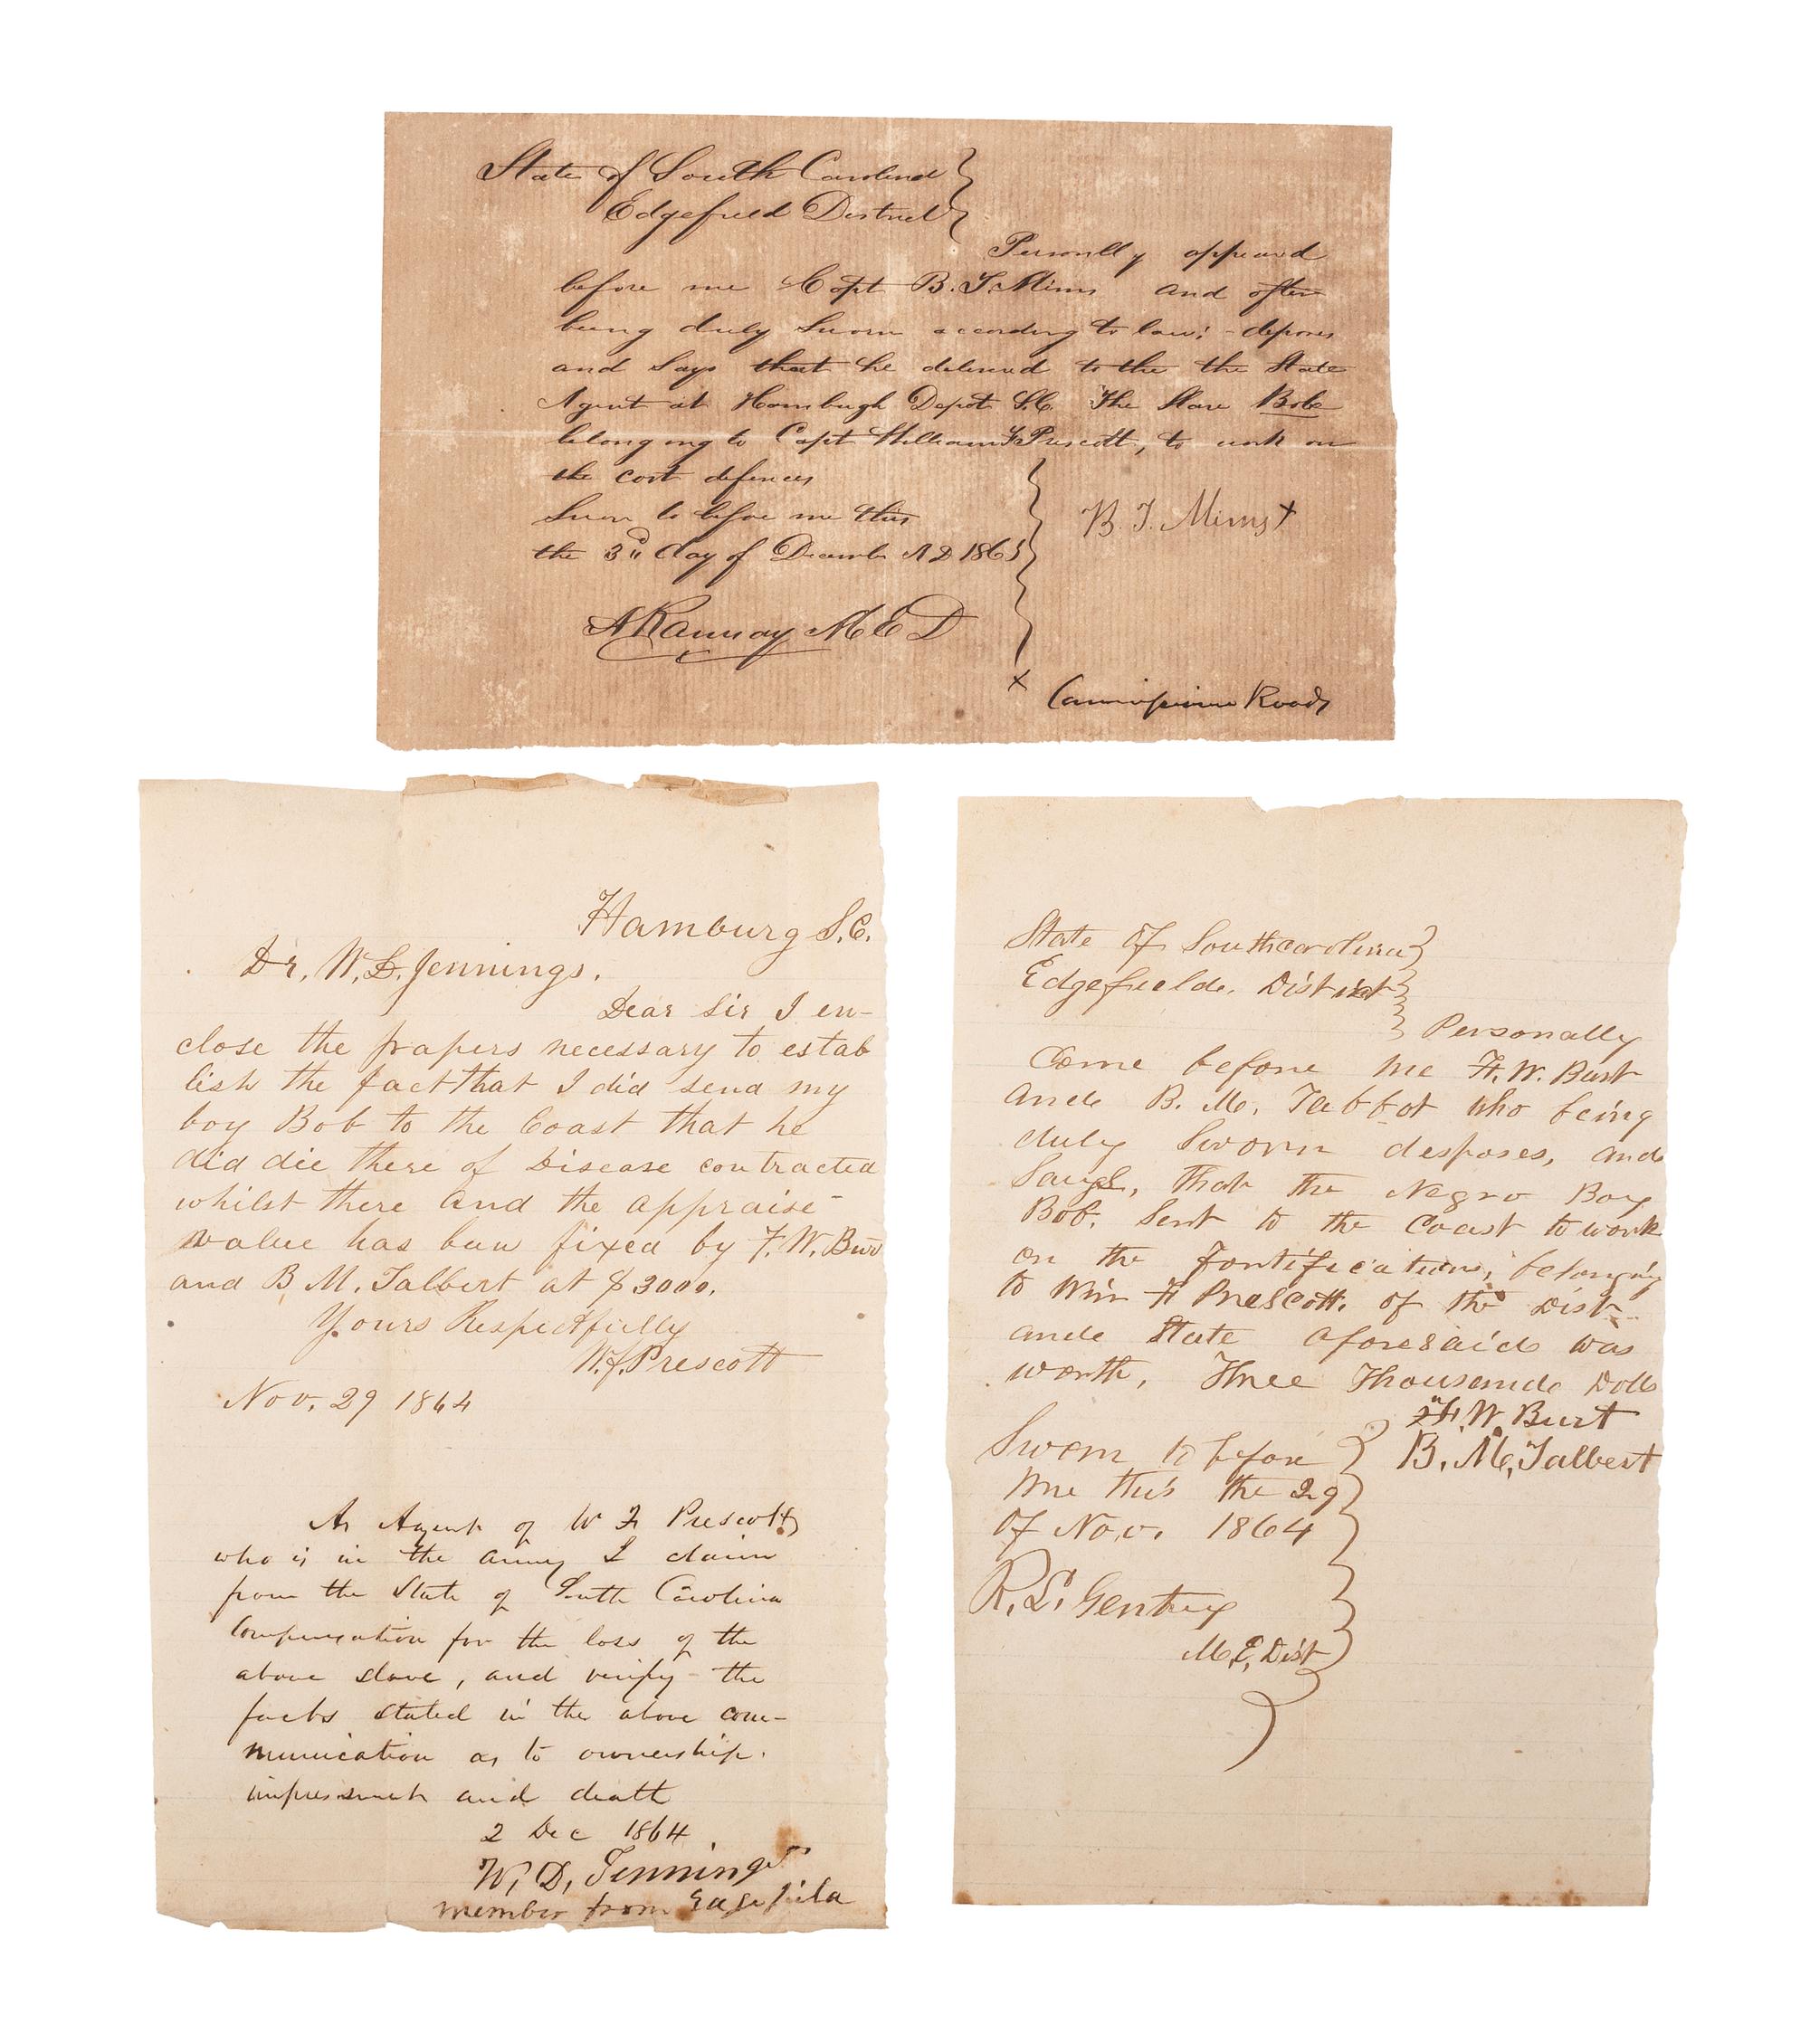 State of South Carolina
Edgefield District
Personlly appeared
before me Capt B. T. Mims and after
being duly Sworn according to law; - deposes
and Says that he delivered to the the State
Agent at Hamburgh Depot S.C. The Slave Bob
belonging to Capt William F Prescott, to work on
the cost defences
Sworn to before me this
the 3rd day of Decemb AD 186
B. T. Mims
A Ramsay M E D
x
Roads
Hamburg S.C.
Dr. W. D. Jennings.
Dear Sir I en-
close the papers necessary to estab
lish the fact that I did send my
boy Bob to the Coast that he
did die there of Disease contracted
whilst there and the appraise-
value has been fixed by F. W. Bur
and B M. Talbert at $3000.
Yours Respectfully
W. F. Prescott
Nov. 29 1864
As Agent of W F Prescott
who is in the army I claim
from the State of South Carolina
Compensation for the loss of the
above slave, and verify the
facts stated in the above com-
munication as to ownership.
impressment and death
2 Dec 1864
W, D, Jennings
member from Edgefield
State Of Southcarolina
Edgefielde. District
Personally
Come before me F. W. Burt
ande B. M. Tabbot who being
duly Sworn desposes, ande
Saugh, that the Negro Boy
Bob. Sent to the Coast to work
on the Fortifications, belonging
to Wm F Prescott. of the Dist
ande State aforesaide was
worth, Three Thousande Dolls
F. W. Burt
B. M. Talbert
Sworn to before
Me this the 29
Of Nov. 1864
R. L. Gentry
M. E. Dist